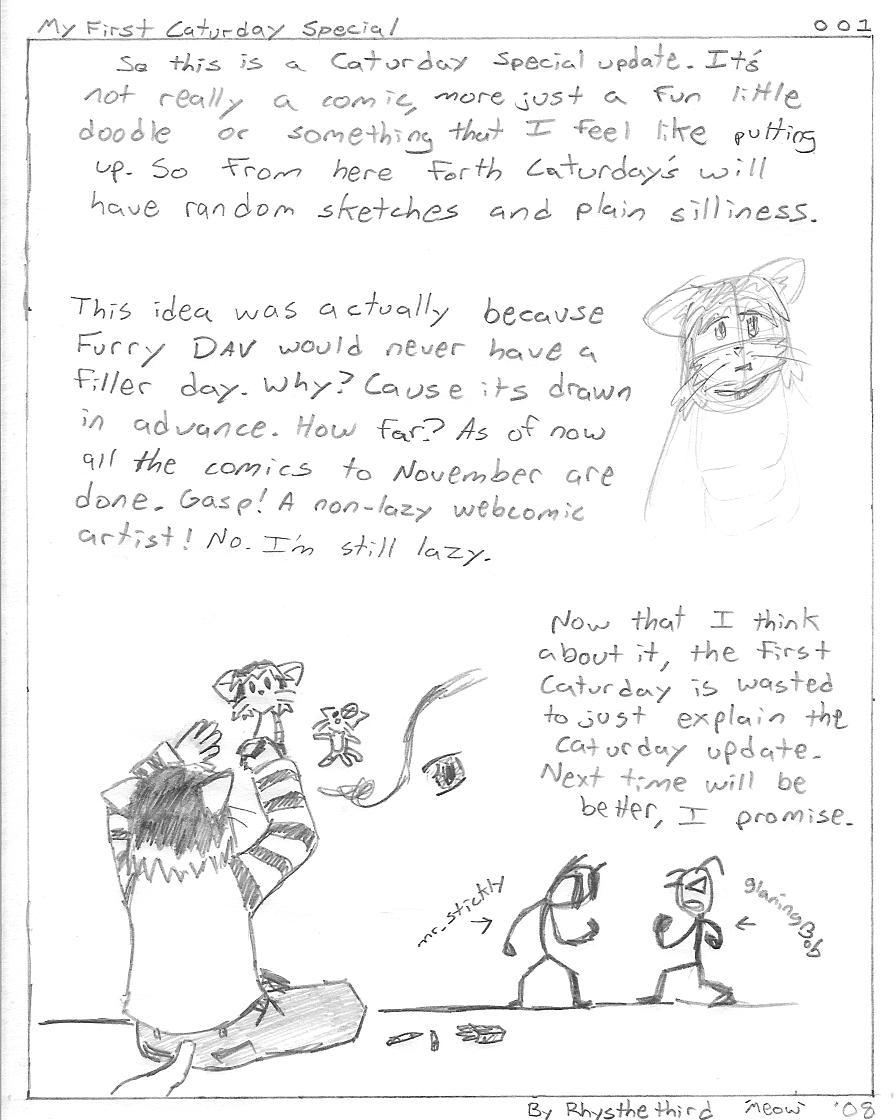 My First Caturday Special
001
So this is a Caturday Special update. It's
not really a comic, more just a fun little
doodle or something that I feel like putting
up. So from here forth Caturday's will
have random sketches and plain silliness.
This idea was actually because
Furry DAV would never have a
filler day. Why? Cause its drawn
in advance. How far? As of now
all the comics to November are
done. Gasp! A non-lazy webcomic
artist! No. I'm still lazy.
Now that I think
about it, the first
Caturday is wasted
to just explain the
Caturday update.
Next time will be
better, I promise.
mr_stickly
glaringBob
By Rhysthethird "Meow" '08